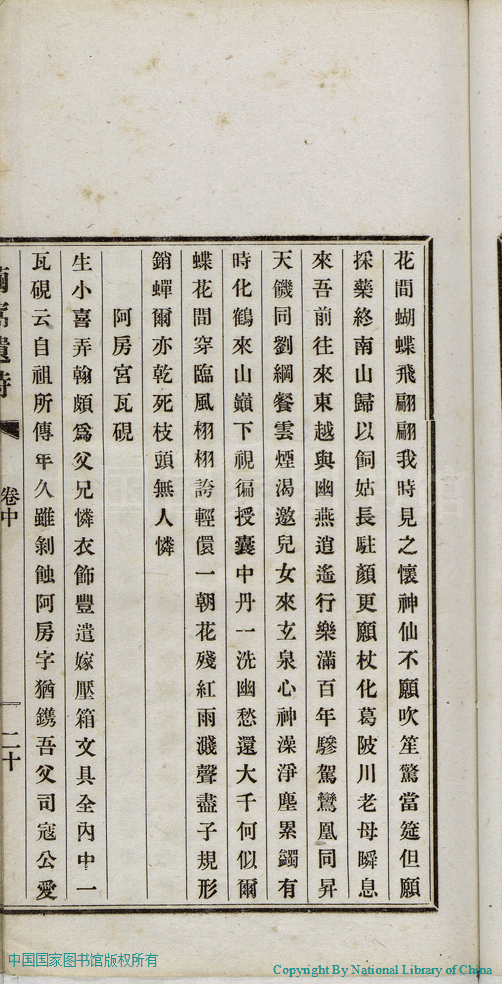 花間蝴蝶飛翩翩我時見之懷神仙不願吹笙驚當筵但願
採藥終南山歸以飼姑長駐顏更願杖化葛陂川老母瞬息
來吾前往來東越與幽燕逍遙行樂滿百年驂駕鸞凰同昇
天饑同劉綱餐雲煙渴邀兒女來玄泉心神澡淨塵累蠲有
時化鶴來山巔下視徧授囊中丹一洗幽愁還大千何似爾
蝶花間穿臨風栩栩誇輕儇一朝花殘紅雨濺聲盡子規形
銷蟬爾亦乾死枝頭無人憐
阿房宮瓦硯
生小喜弄翰頗爲父兄憐衣飾豐遣嫁壓箱文具全內中一
瓦硯云自祖所傳年久雖剝蝕阿房字猶鐫吾父司寇公愛
遺詩
卷中
二十
中国国家图书馆版权所有
Copyright By National Library of China